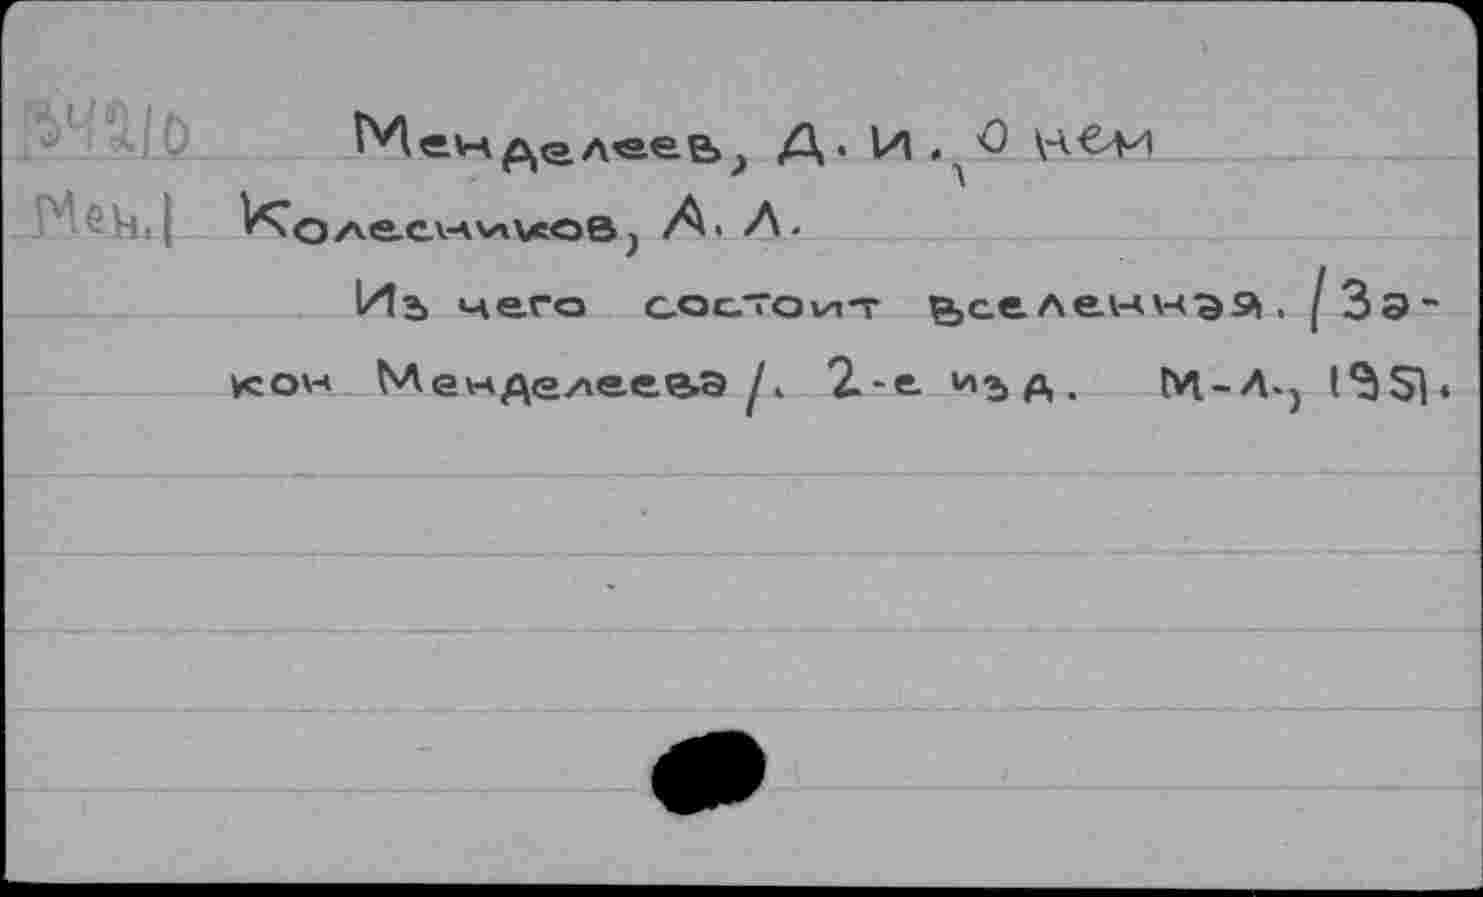 Менделеев, Д. И. О нем
Мен. Колесников, А. Л.
Из чего состоит вселенная. /За-
кон Менделеева/. 2-е изд. М-Л., 1951.